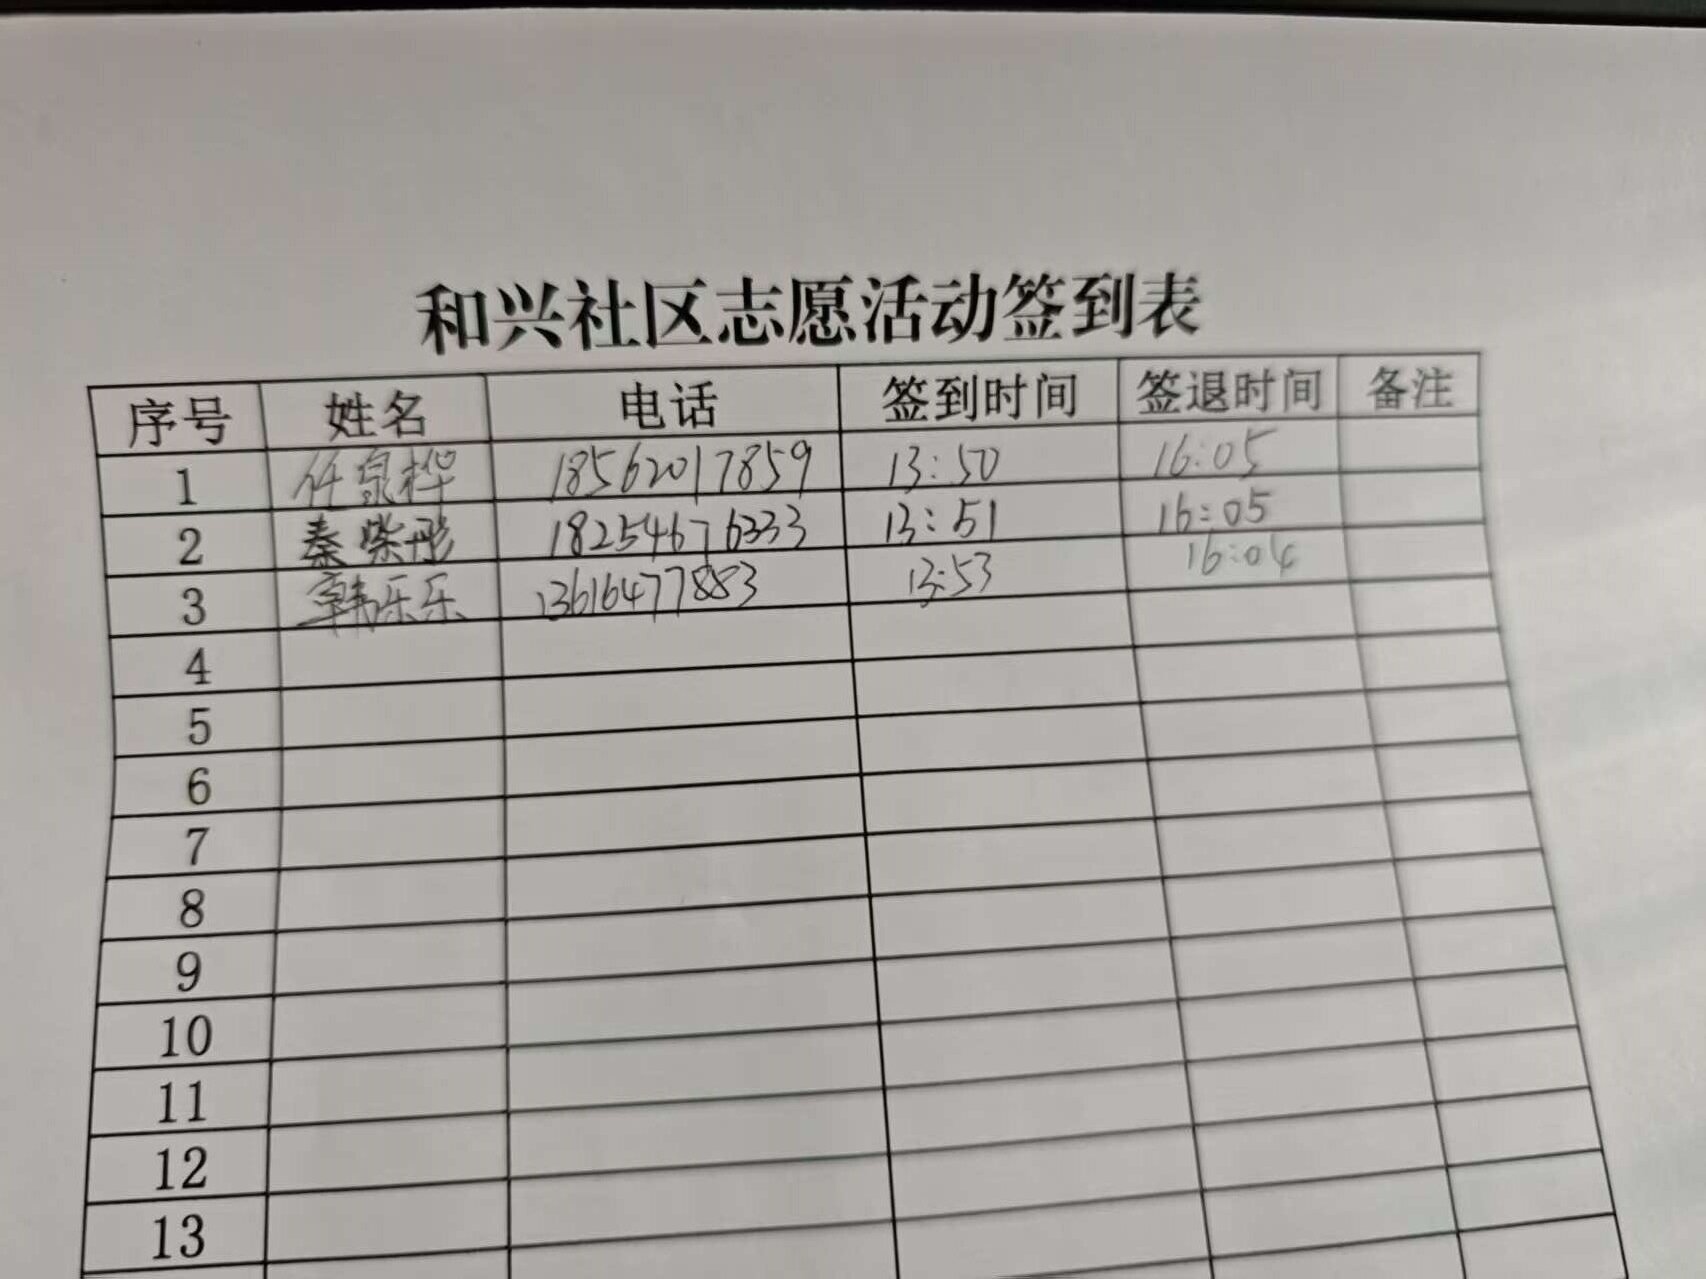 和兴社区志愿活动签到表
序号 姓名 电话 签到时间 签退时间 备注
1 任泉桦 18562017859 13:50 16:05
2 秦紫彤 18254676333 13:51 16:05
3 韩乐乐 13616477883 13:53 16:04
4
5
6
7
8
9
10
11
12
13